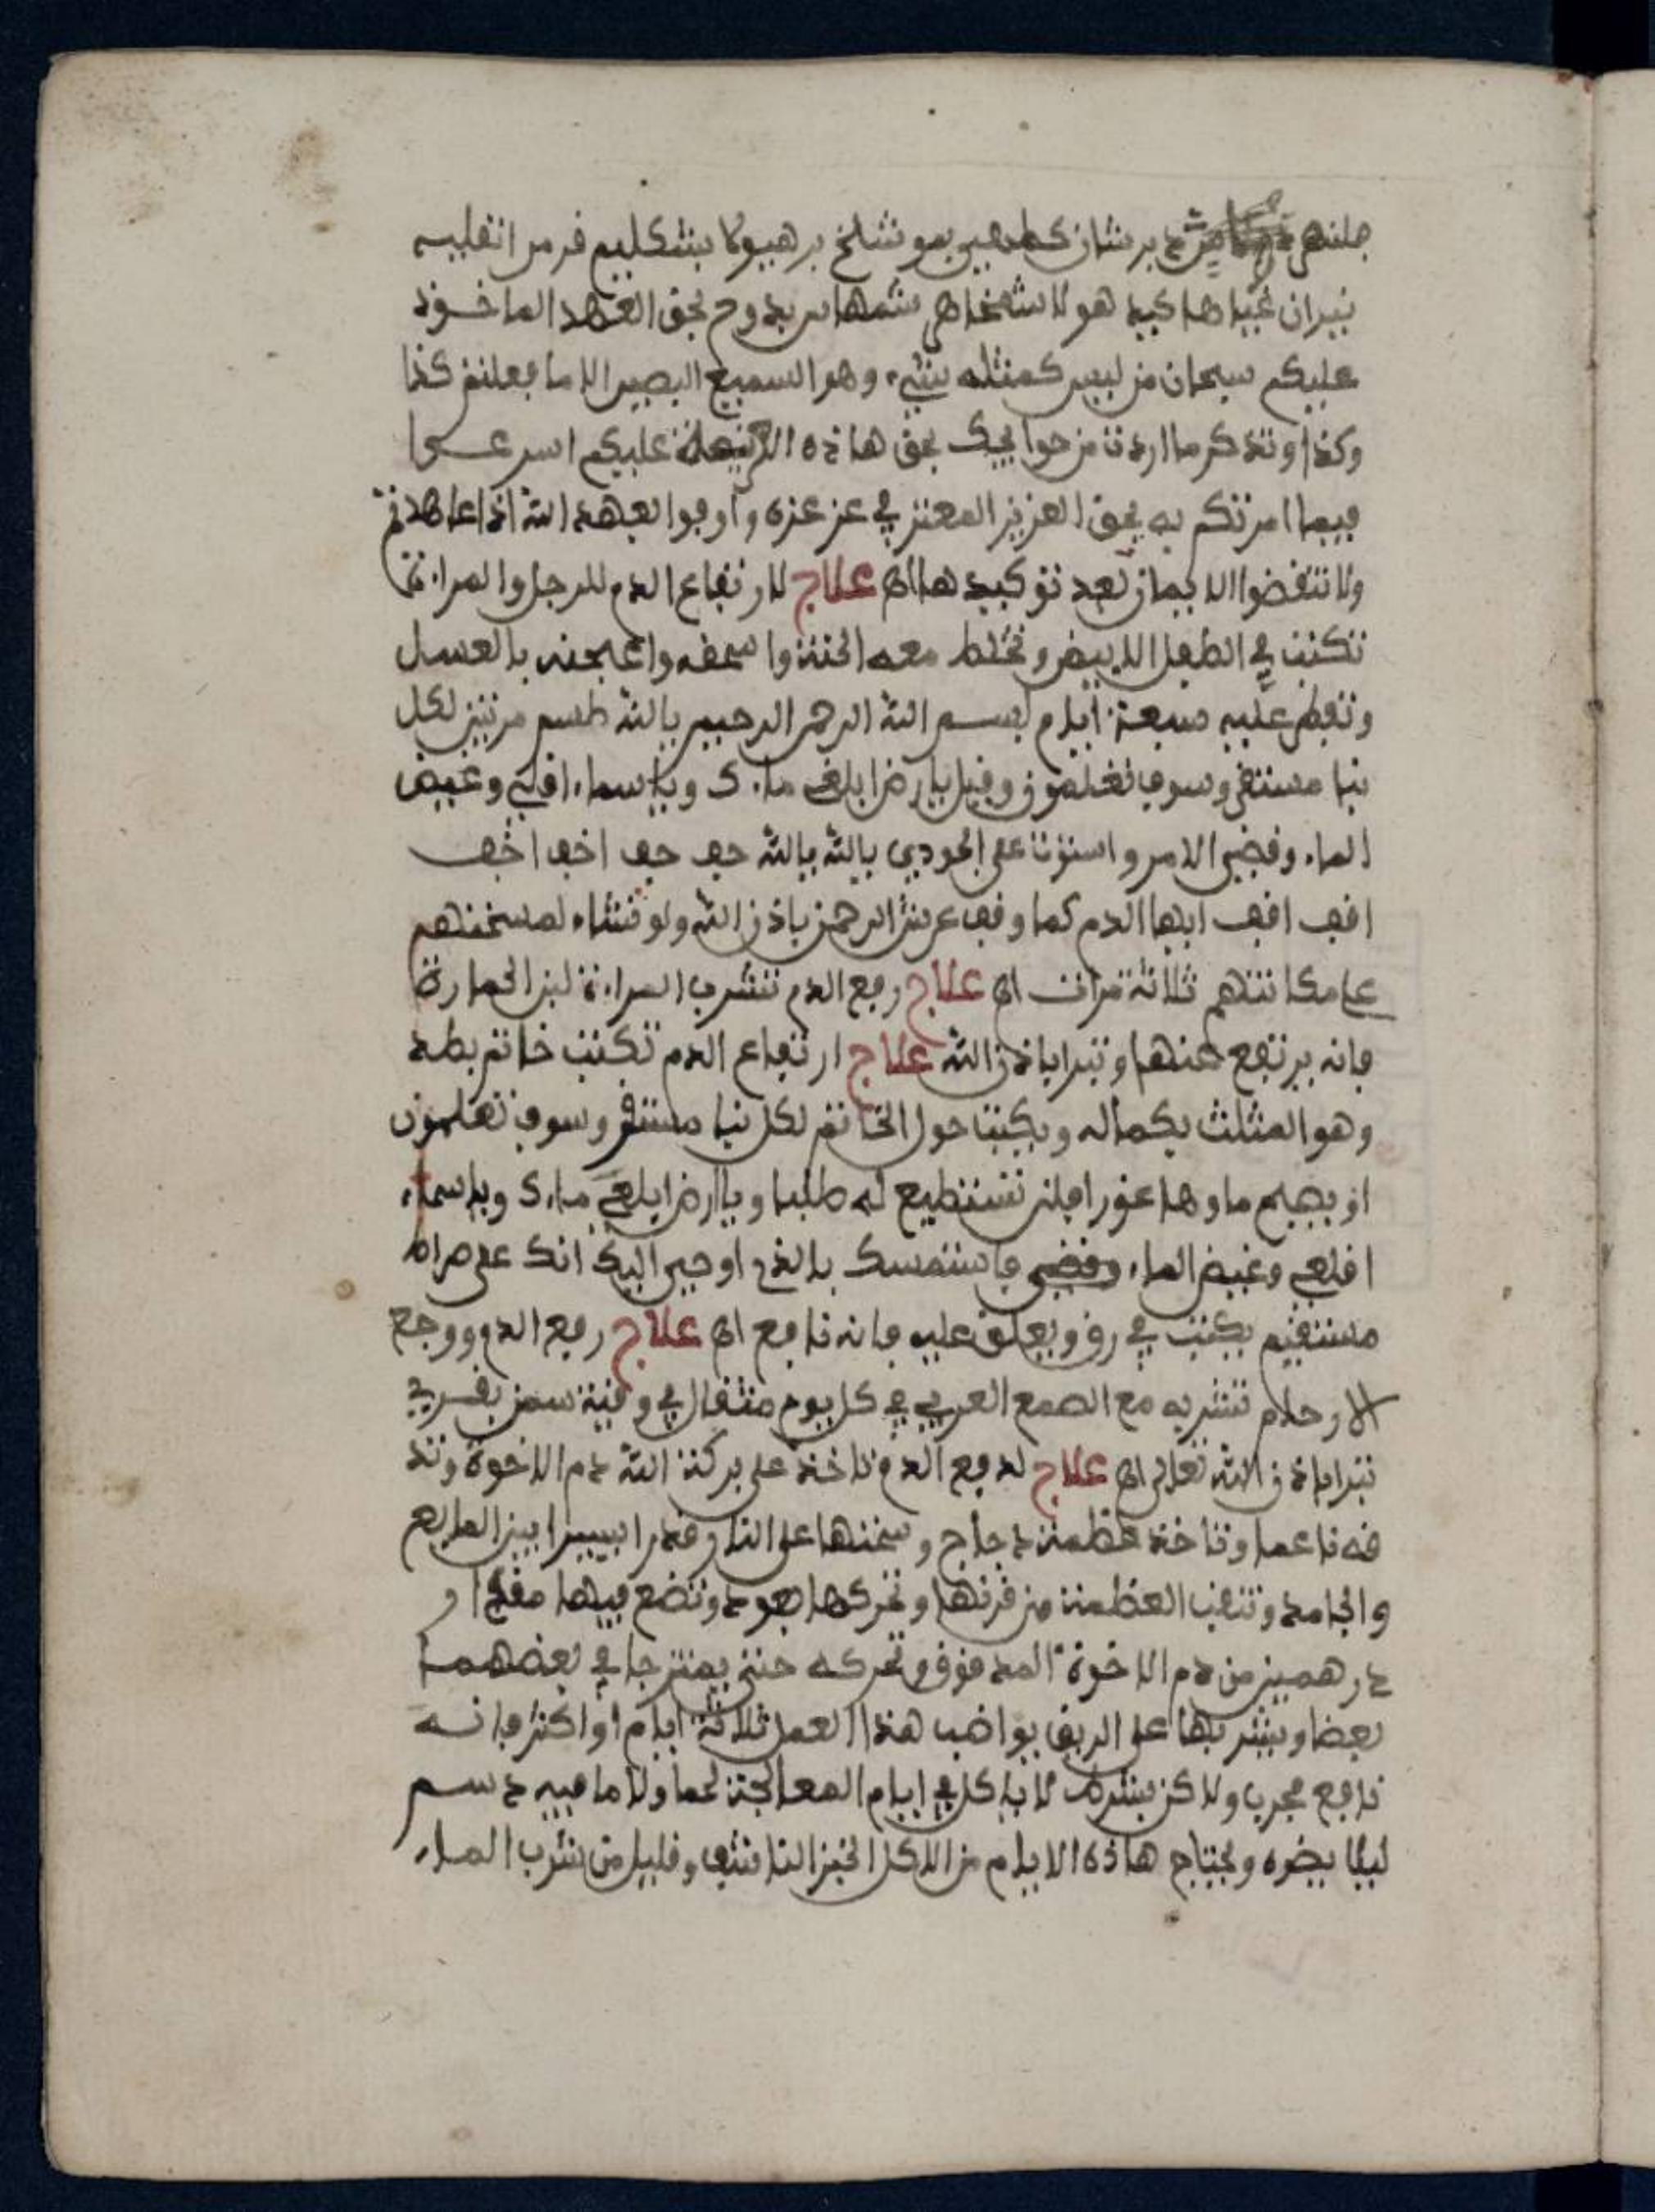 برشان كظهير بموشلخ برهيولا بشكليخ قزمز انغلليه
نيران غياها كيد هولا شمخاهر شمهاهير بدوح بحق العهد الماخوذ
عليكم سبحان من ليس كمثله شيء وهو السميع البصير الا ما فعلتم كذا
وكذا وتذكر ما اردت من حوايجك بحق هاذه عليكم اسرعوا
فيما امرتكم به بحق العزيز المعتز في عز عزه واوفوا بعهد الله اذا عاهدتم
ولا تنقضوا الايمان بعد توكيدها اهـ علاج لارتفاع الدم للرجل والمراة
تكتب في الطفل الابيض وتخلط معه الحنة واسحقه واعجنه بالعسل
وتفطر عليه سبعة ايام بسم الله الرحمن الرحيم بالله طسم مرتين لكل
نبا مستقر وسوف تعلمون وقيل يارض ابلعي ماءك وياسماء اقلعي وغيض
الماء وقضي الامر واستوت على الجودي بالله بالله جف جف اخف اخف
اقف اقف ايها الدم كما وقف عرش الرحمن باذن الله ولو نشاء لمسخنهم
على مكانتهم ثلاثة مرات اهـ علاج رفع الدم تشرب المراة لبن الحمارة
فانه يرتفع عنها وتبرا باذن الله علاج ارتفاع الدم تكتب خاتم بطد
وهو المثلث بكماله ويكتب حول الخاتم لكل نبا مستقر وسوف تعلمون
او يصبح ماوها غورا فلن تستطيع له طلبا وياارض ابلعي ماءك وياسماء
اقلعي وغيض الماء وقضي فاستمسك بالذي اوحي اليك انك على صراط
مستقيم يكتب في رق ويعلق عليه فانه نافع اهـ علاج رفع الدم ووجع
الارحام تشربه مع الصمغ العربي في كل يوم مثقال في وقية سمن بقري
تبرا باذن الله تعلى اهـ علاج لدفع الدم تاخذ على بركة الله دم الاخوة وتد
قه ناعما وتاخذ عظمة دجاج وسخنها على النار قدرا يسيرا بين المايع
والجامد وتثقب العظمة من قرنها وتحركها بعود وتضع فيها مقدار
درهمين من دم الاخوة المدقوق وتحركه حتى يمتزجا في بعضهما
بعضا ويشربها على الريق يواضب هذا العمل ثلاثة ايام او اكثر فانه
نافع مجرب ولاكن بشرط لا ياكل في ايام المعالجة لحما ولا ما فيه دسم
ليلا يضره ويحتاج هاذه الايام من الاكل الخبز الناشف وقليل من شرب الماء